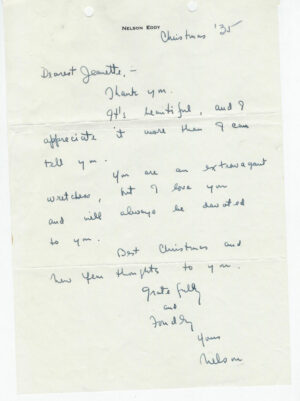 NELSON EDDY
Christmas '35
Dearest Jeanette, -
Thank you.
It's beautiful, and I
appreciate it more than I can
tell you.
You are an extravagant
wretchess, but I love you
and will always be devoted
to you.
Best Christmas and
New Year thoughts to you.
Gratefully
and
Fondly
Yours
Nelson